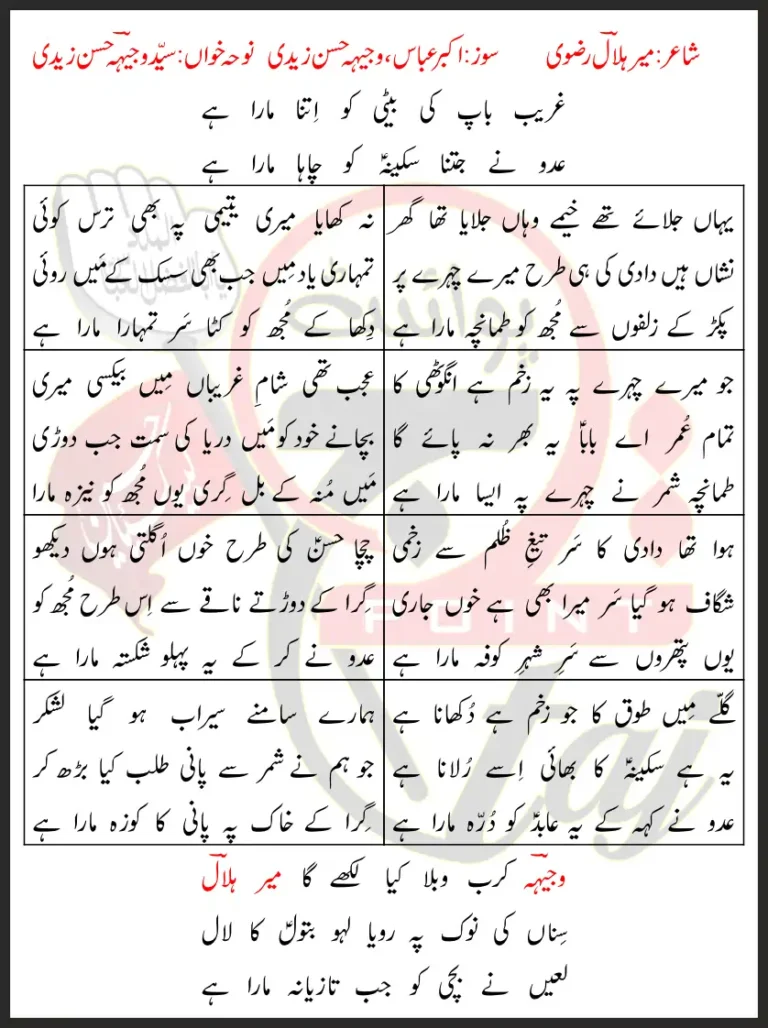 شاعر: میر ہلالؔ رضوی    سوز: اکبر عباس، وجیہہ حسن زیدی    نوحہ خواں: سیّد وجیہہؔ حسن زیدی
غریب باپ کی بیٹی کو اِتنا مارا ہے
عدو نے جتنا سکینہؑ کو چاہا مارا ہے
یہاں جلائے تھے خیمے وہاں جلایا تھا گھر
نشاں ہیں دادی کی ہی طرح میرے چہرے پر
پکڑ کے زلفوں سے مُجھ کو طمانچہ مارا ہے
نہ کھایا میری یتیمی پہ بھی ترس کوئی
تمہاری یاد مِیں جب بھی سسک کے مَیں روئی
دِکھا کے مُجھ کو کٹا سَر تمہارا مارا ہے
جو میرے چہرے پہ یہ زخم ہے انگوٹھی کا
تمام عُمر اے باباؑ یہ بھر نہ پائے گا
طمانچہ شمر نے چہرے پہ ایسا مارا ہے
عجب تھی شامِ غریباں مِیں بیکسی میری
بچانے خود کو مَیں دریا کی سمت جب دوڑی
مَیں مُنہ کے بل گِری یوں مُجھ کو نیزہ مارا
ہوا تھا دادی کا سَر تیغِ ظُلم سے زخمی
شگاف ہو گیا سَر میرا بھی ہے خوں جاری
یوں پتھروں سے سَرِ شہرِ کوفہ مارا ہے
چچا حسنؑ کی طرح خوں اُگلتی ہوں دیکھو
گِرا کے دوڑتے ناقے سے اِس طرح مُجھ کو
عدو نے کر کے یہ پہلو شکستہ مارا ہے
گلّے مِیں طوق کا جو زخم ہے دُکھانا ہے
یہ ہے سکینہؑ کا بھائی اِسے رُلانا ہے
عدو نے کہہ کے یہ عابدؑ کو دُرّہ مارا ہے
ہمارے سامنے سیراب ہو گیا لشکر
جو ہم نے شمر سے پانی طلب کیا بڑھ کر
گِرا کے خاک پہ پانی کا کوزہ مارا ہے
وجیہہؔ کرب وبلا کیا لکھے گا میر ہلالؔ
سِناں کی نوک پہ رویا لہو بتولؑ کا لال
لعیں نے بچی کو جب تازیانہ مارا ہے
POINT